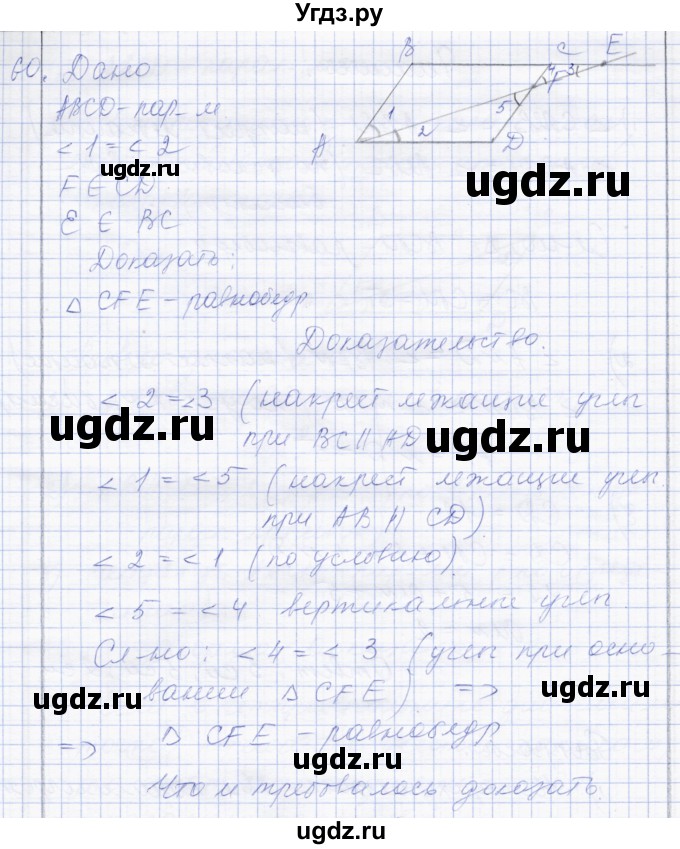 Угдз.ру
60. Дано
ABCD - пар-м
< 1 = < 2
F ∈ CD
E ∈ BC
Доказать:
△ CFE - равнобедр
B C E
4 F 3
1 5
A 2 D
ugdz.ru
ugdz.ru
Доказательство.
< 2 = <3 (накрест лежащие углы
при BC || AD
ugdz.ru
ugdz.ru
< 1 = < 5 (накрест лежащие углы
при AB || CD)
ugdz.ru
< 2 = < 1 (по условию)
ugdz.ru
< 5 = < 4 вертикальные углы.
Сл-но: < 4 = < 3 (углы при осно-
вании △ CFE) =>
ugdz.ru
ugdz.ru
=> △ CFE - равнобедр.
ugdz.ru
Что и требовалось доказать.
ugdz.ru